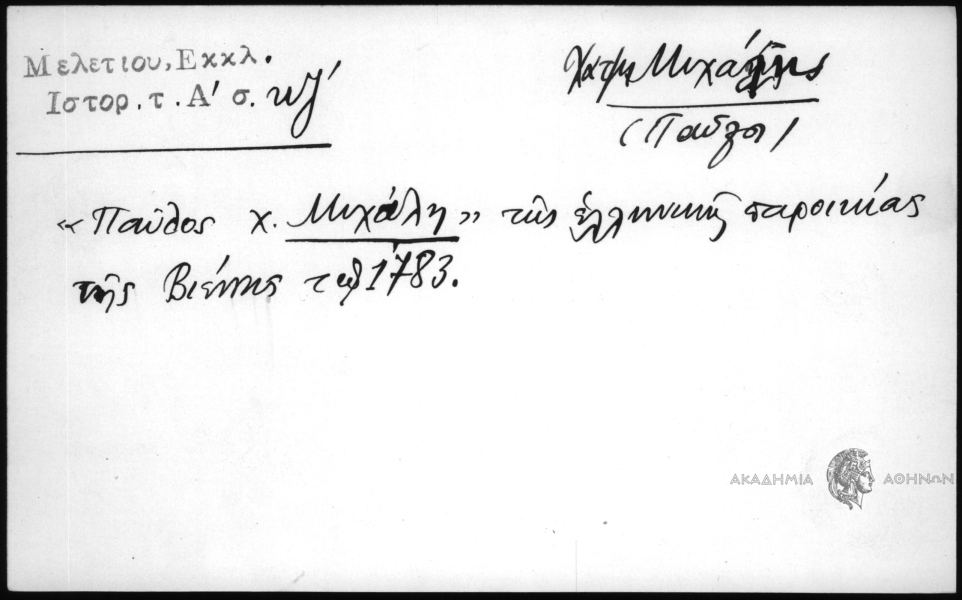 Μελετίου, Εκκλ.
Ιστορ. τ. Α' σ.
Χατζη Μιχάλης
(Παῦλος)
«Παῦλος χ. Μιχάλη» τῆς ἑλληνικῆς παροικίας
τῆς Βιέννης τῷ 1783.
ΑΚΑΔΗΜΙΑ ΑΘΗΝΩΝ